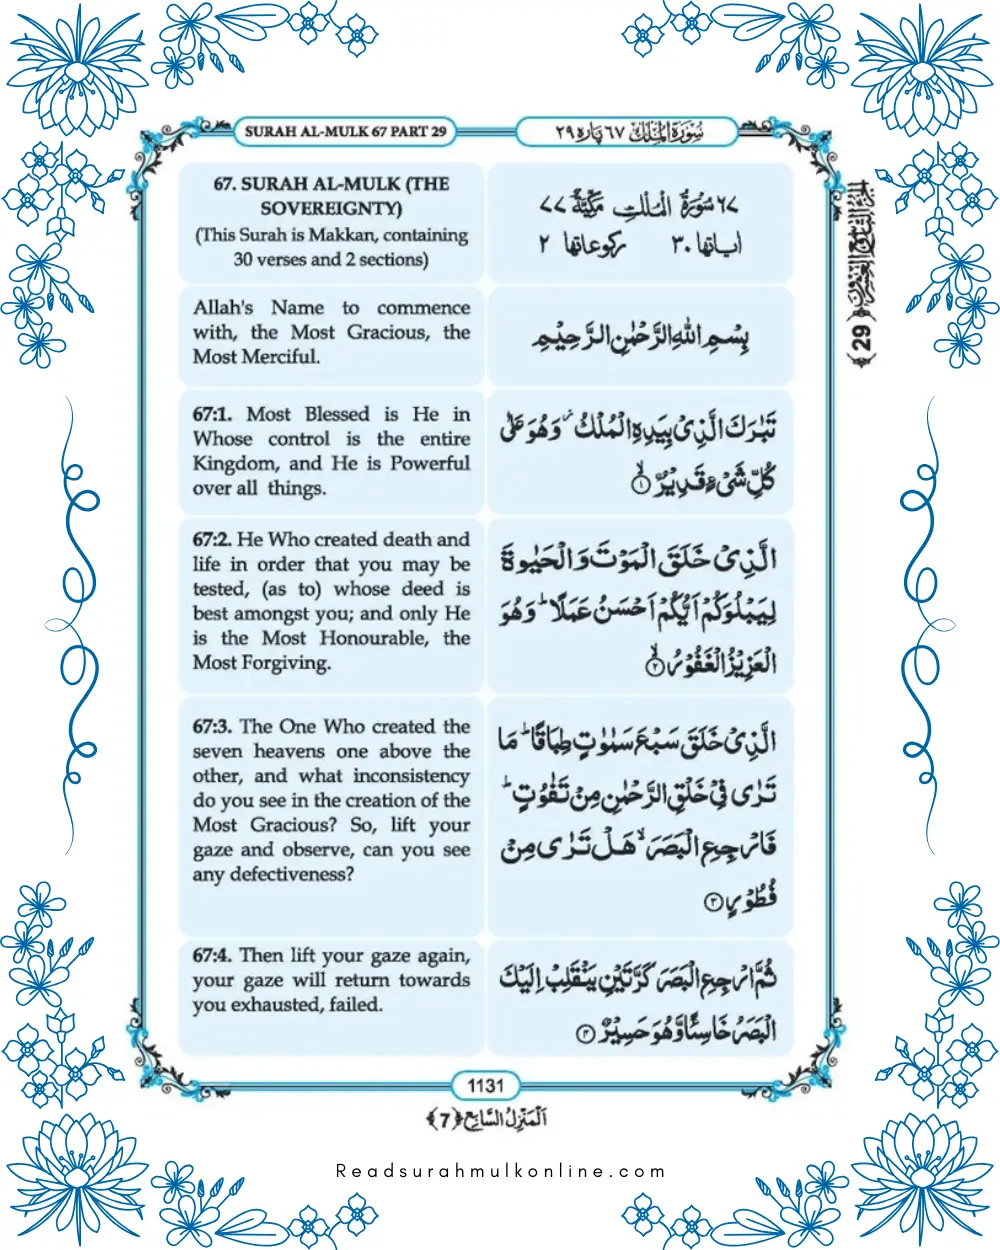 SURAH AL-MULK 67 PART 29
سُوْرَةُ الْمُلْك ٦٧ پَاره ٢٩
67. SURAH AL-MULK (THE
SOVEREIGNTY)
(This Surah is Makkan, containing
30 verses and 2 sections)
٦٧ سُوْرَةُ الْمُلْكِ مَكِّيَّةٌ ٧٧
اٰیاتها ٣٠ رکوعاتها ٢
(29)
Allah's Name to commence
with, the Most Gracious, the
Most Merciful.
بِسْمِ اللّٰهِ الرَّحْمٰنِ الرَّحِيْمِ
67:1. Most Blessed is He in
Whose control is the entire
Kingdom, and He is Powerful
over all things.
تَبٰرَكَ الَّذِىْ بِيَدِهِ الْمُلْكُ ز وَهُوَ عَلٰى
كُلِّ شَىْءٍ قَدِيْرٌ ۙ ﴿١﴾
67:2. He Who created death and
life in order that you may be
tested, (as to) whose deed is
best amongst you; and only He
is the Most Honourable, the
Most Forgiving.
الَّذِىْ خَلَقَ الْمَوْتَ وَالْحَيٰوةَ
لِيَبْلُوَكُمْ اَيُّكُمْ اَحْسَنُ عَمَلًا ؕ وَهُوَ
الْعَزِيْزُ الْغَفُوْرُ ۙ ﴿٢﴾
67:3. The One Who created the
seven heavens one above the
other, and what inconsistency
do you see in the creation of the
Most Gracious? So, lift your
gaze and observe, can you see
any defectiveness?
الَّذِىْ خَلَقَ سَبْعَ سَمٰوٰتٍ طِبَاقًا ؕ مَا
تَرٰى فِىْ خَلْقِ الرَّحْمٰنِ مِنْ تَفٰوُتٍ ؕ
فَارْجِعِ الْبَصَرَ ۙ هَلْ تَرٰى مِنْ
فُطُوْرٍ ﴿٣﴾
67:4. Then lift your gaze again,
your gaze will return towards
you exhausted, failed.
ثُمَّ ارْجِعِ الْبَصَرَ كَرَّتَيْنِ يَنْقَلِبْ اِلَيْكَ
الْبَصَرُ خَاسِئًا وَّهُوَ حَسِيْرٌ ﴿٤﴾
1131
اَلْمَنْزِلُ السَّابِع (7)
Readsurahmulkonline.com